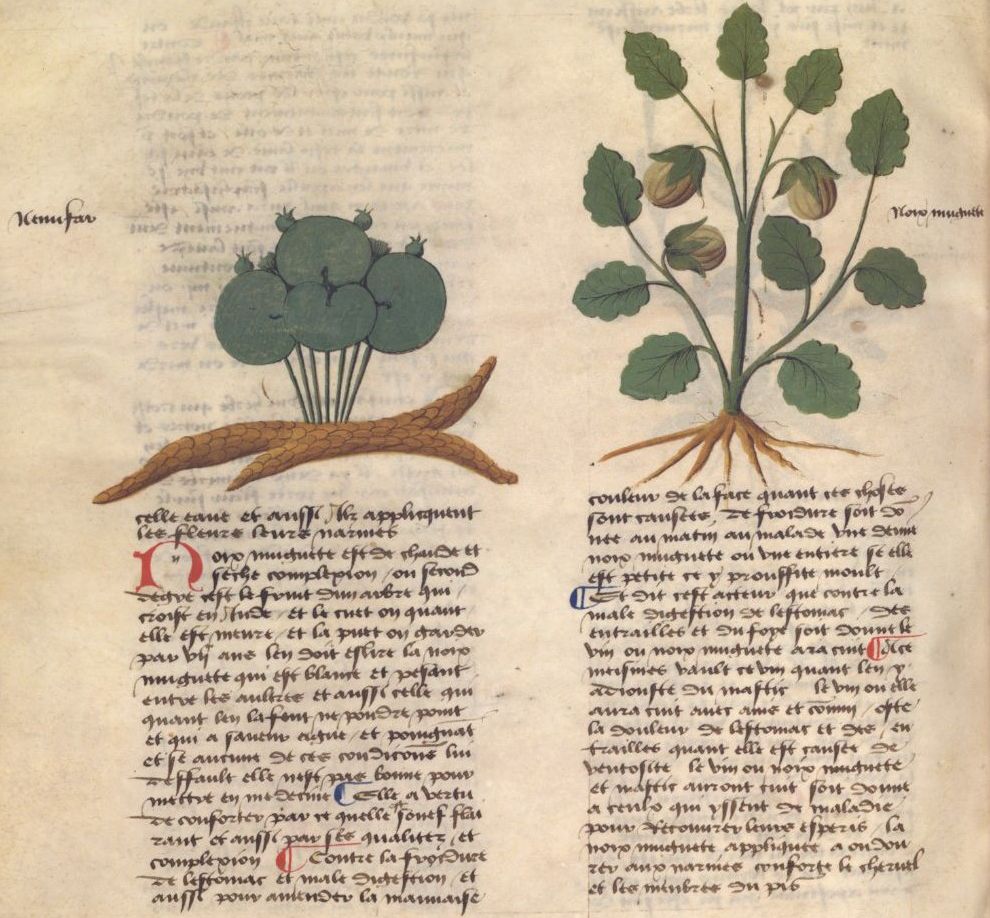 Nenufar
celle eaue et aussi ilz applicquent
les fleurs leurs narines
Noix muguete est de chaude et
seche complexion ou second
degre cest le fruit dun arbre qui
croist en Inde et le cuet on quant
elle est meure et la puet on garder
par vii ans len doit eslire la noix
muguete qui est blance et pesant
entre les aultres et aussi celle qui
quant len la fent ne pouldre point
et qui a saveur egue et poingnat
et se aucune de ces condicions lui
deffault elle nest pas bonne pour
mettre en medecine Elle a vertu
de conforter par ce quelle souef flai
rant et aussi par ses qualitez et
complexion Contre la froidure
de lestomac et male digestion et
aussi pour amender la mauuaise
Noix muguete
couleur de la face quant ces choses
sont causees de froidure soit do
nee au matin au malade vne demie
noix muguete ou vne entiere se elle
est petite ce y prouffite moult
Et dit cest acteur que contre la
male digestion de lestomac des
entrailles et du foye soit donne le
vin ou noix muguete ara cuit Et ce
meismes vault ce vin quant len y
adiouste du mastic le vin ou elle
aura cuit auec anis et comin oste
la douleur de lestomac et des en
trailles quant elle est causee de
ventosite le vin ou noix muguete
et mastic auront cuit soit donne
a ceulx qui yssent de maladie
pour recouurer leurs esperis la
noix muguete appliquee a oudou
rer aux narines conforte le cheruel
et les menbres du pis